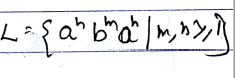 L = { aⁿ bᵐ aⁿ | m, n ≥, 1}